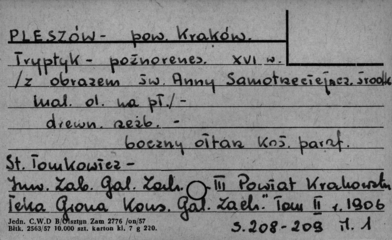 PLESZÓW - pow. Kraków.
Tryptyk - poźnorenes. XVI w.
/z obrazem św. Anny Samotrzeciej na środk
mal. ol. na pł./ -
drewn. rzeźb. -
boczny ołtarz koś. paraf.
St. Tomkowicz -
Inw. Zab. Gal. Zach. III Powiat Krakowski
Teka Grona Kons. Gal. Zach. Tom II r. 1906
s. 208-209 il. 1
Jedn. C.W.D B/Olsztyn Zam 2776 /on/57
Błtk. 2563/57 10.000 szt. karton kl. 7 g 220.